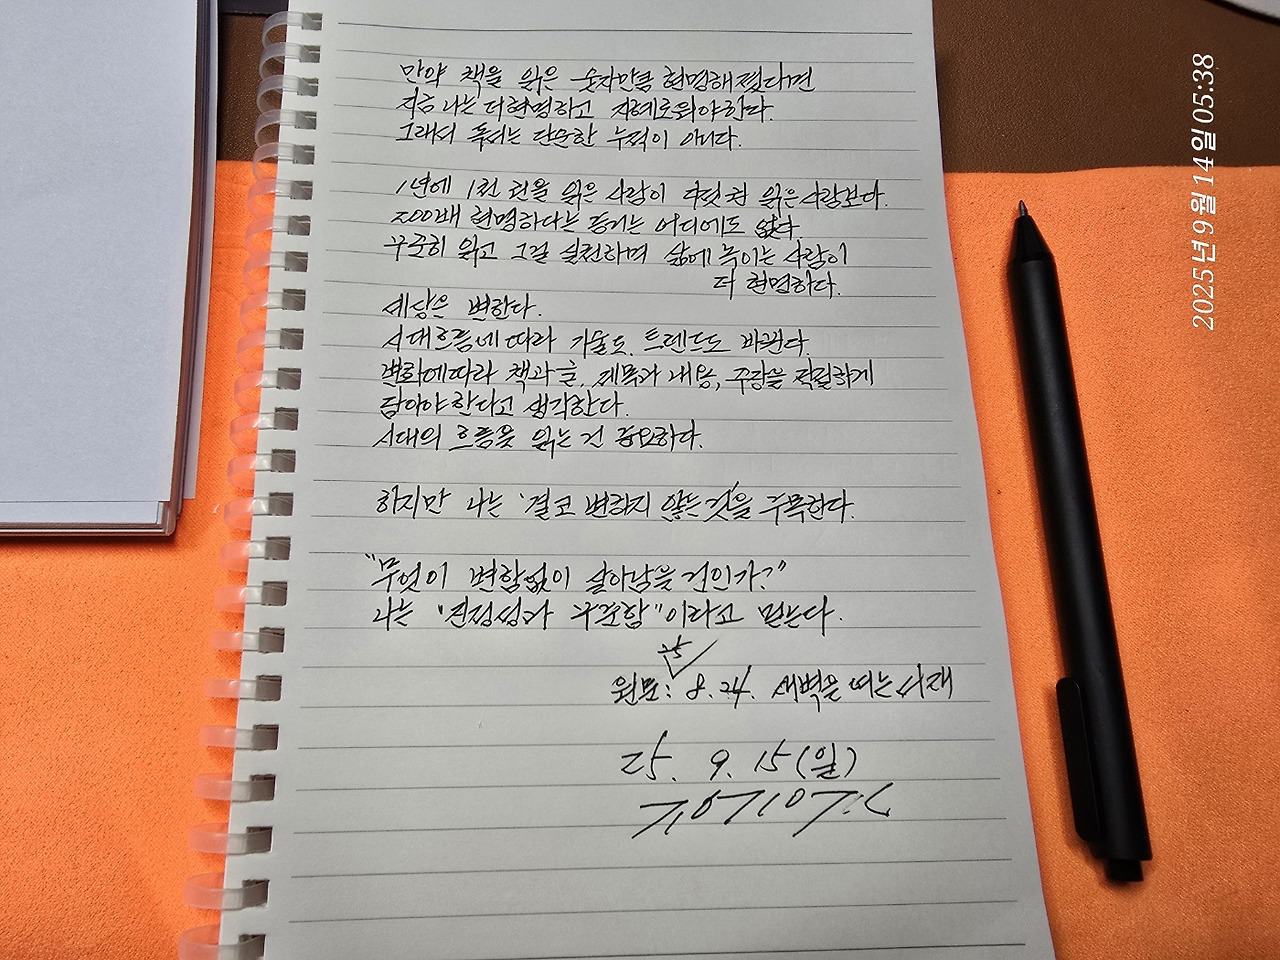 만약 책을 읽은 숫자만큼 현명해졌다면
지금 나는 더 현명하고 지혜로워야 한다.
그래서 독서는 단순한 누적이 아니다.
1년에 1천 권을 읽은 사람이 다섯 권 읽은 사람보다.
200배 현명하다는 증거는 어디에도 없다.
꾸준히 읽고 그걸 실천하며 삶에 녹이는 사람이
더 현명하다.
세상은 변한다.
시대흐름에 따라 기술도, 트렌드도 바뀐다.
변화에 따라 책과 글, 제목과 내용, 주장을 적절하게
담아야 한다고 생각한다.
시대의 흐름을 읽는 건 중요하다.
하지만 나는 '결코 변하지 않는 것'을 주목한다.
"무엇이 변함없이 살아남을 것인가?"
나는 "진정성과 꾸준함"이라고 믿는다.
25
원문: 8. 24. 새벽을 여는 서재
25. 9. 15 (일)
2025년 9월 14일 05:38